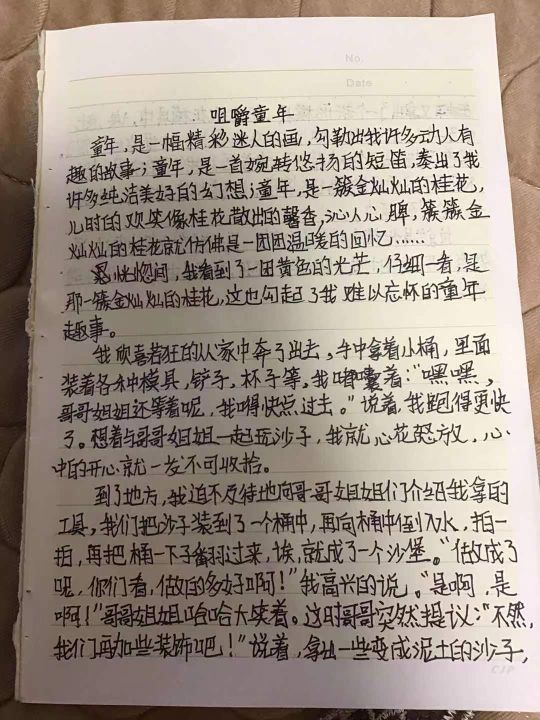 No.
Date
咀嚼童年
童年，是一幅精彩迷人的画，勾勒出我许多动人有
趣的故事；童年，是一首婉转悠扬的短笛，奏出了我
许多纯洁美好的幻想；童年，是一簇金灿灿的桂花，
儿时的欢笑像桂花散出的馨香，沁人心脾，簇簇金
灿灿的桂花就仿佛是一团团温暖的回忆……
恍惚间，我看到了一团黄色的光芒，仔细一看，是
那一簇金灿灿的桂花，这也勾起了我难以忘怀的童年
趣事。
我欣喜若狂的从家中奔了出去，手中拿着小桶，里面
装着各种模具，铲子，杯子等，我嘟囔着：“嘿嘿，
哥哥姐姐还等着呢，我得快点过去。”说着，我跑得更快
了。想着与哥哥姐姐一起玩沙子，我就心花怒放，心
中的开心就一发不可收拾。
到了地方，我迫不及待地向哥哥姐姐们介绍我拿的
工具，我们把沙子装到了一个桶中，再向桶中倒入水，拍一
拍，再把桶一下子翻过来，诶，就成了一个沙堡。“做成了
呢，你们看，做的多好啊！”我高兴的说。“是啊，是
啊！”哥哥姐姐哈哈大笑着。这时哥哥突然提议：“不然，
我们再加些装饰吧！”说着，拿出一些变成泥土的沙子，
CJP